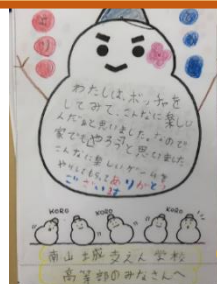 わたしは、ボッチャを
してみて、こんなに楽しい
んだなと思いました。なので
家でもやろうと思いました。
こんなに楽しいゲームを
ありがとう
ございます
KORO KORO KORO
南山城支えん学校
高等部のみなさんへ